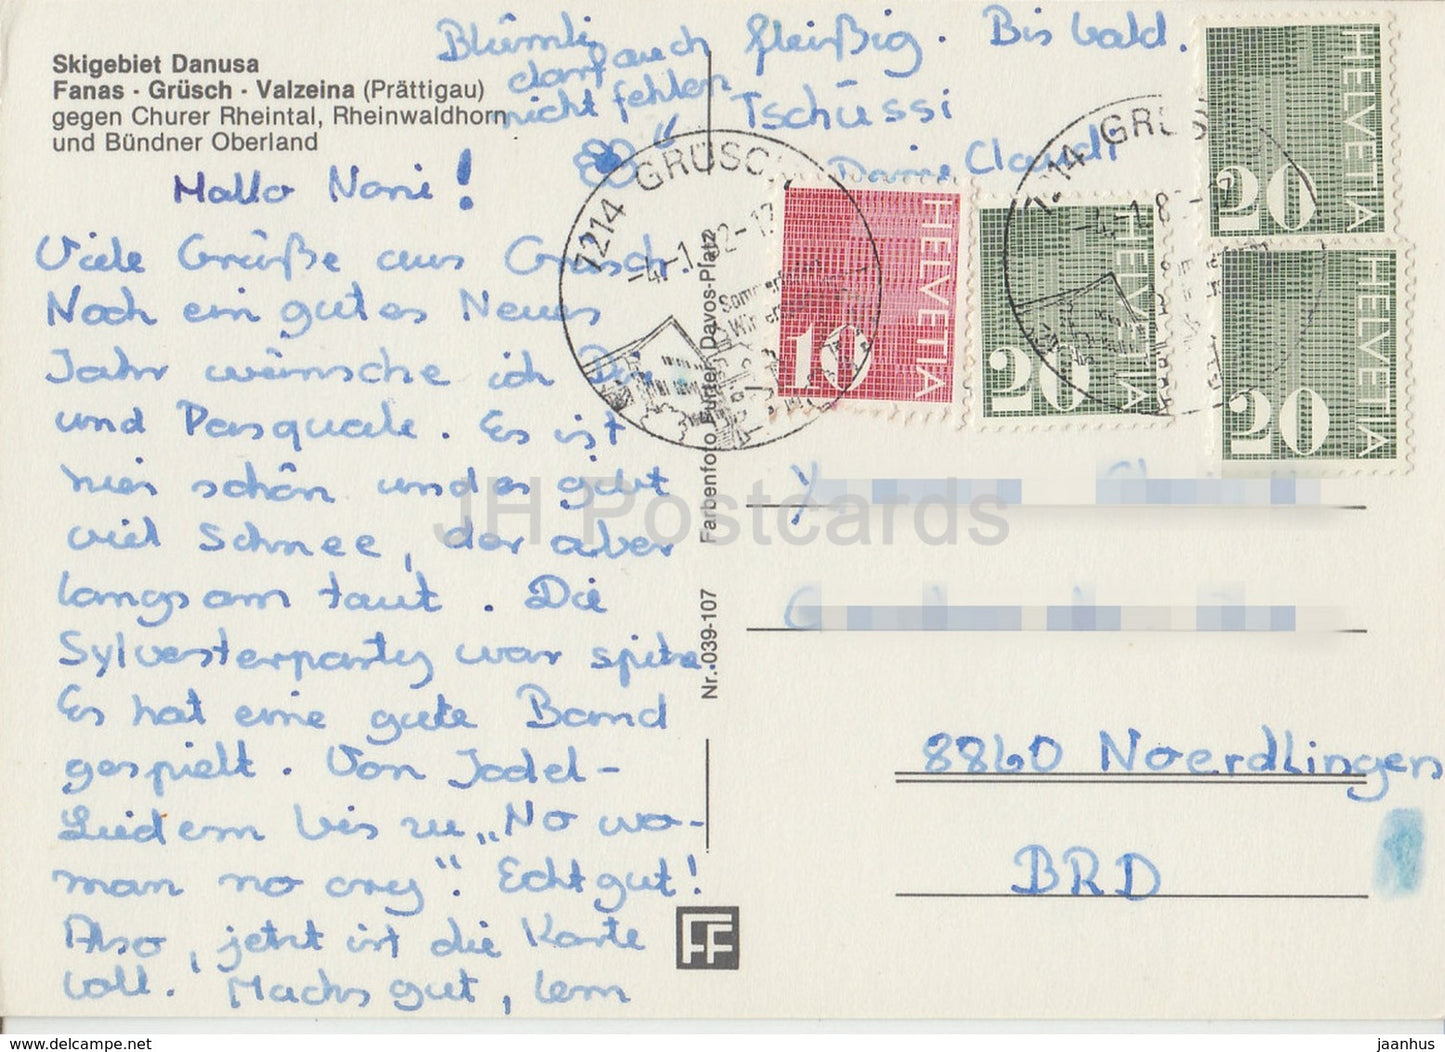 Skigebiet Danusa
Fanas · Grüsch · Valzeina (Prättigau)
gegen Churer Rheintal, Rheinwaldhorn
und Bündner Oberland
Hallo Nani!
Viele Grüße aus Grüsch.
Noch ein gutes Neues
Jahr wünsche ich Dir
und Pasquale. Es ist
hier schön und es gibt
viel Schnee, der aber
langsam taut. Die
Sylvesterparty war spitze.
Es hat eine gute Band
gespielt. Von Jodel-
Liedern bis zu „No wo-
man no cry". Echt gut!
Also, jetzt ist die Karte
voll. Machs gut, lern
auch fleißig. Bis bald.
Tschüssi
Deine Claudi
Blümli
darf
nicht fehlen
"
7214 GRÜSCH
-4.-1.82-12
HELVETIA
10
HELVETIA
20
HELVETIA
20
HELVETIA
20
8860 Noerdlingen
BRD
Nr. 039-107
Farbenfoto Furter, Davos-Platz
FF
JH Postcards
delcampe.net
jaanhus